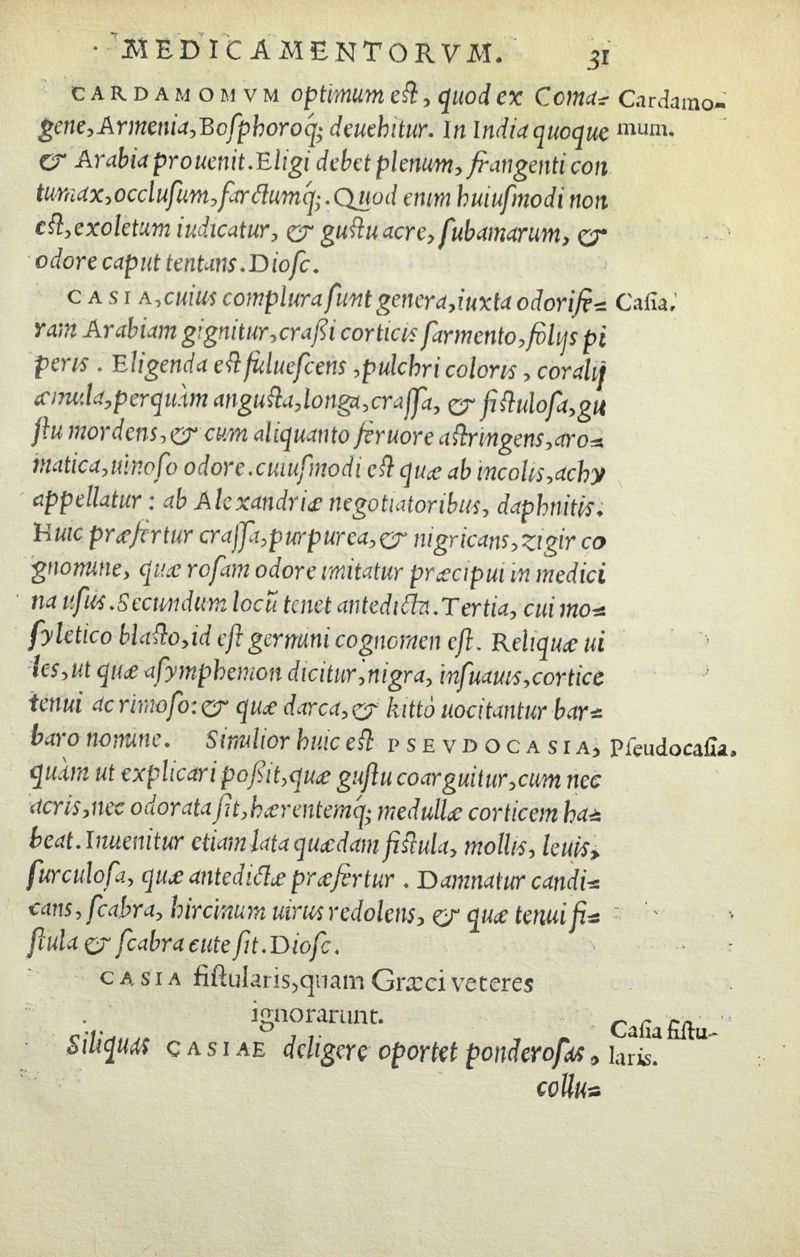 MEDICAMENTORVM. 31
CARDAMOMVM optimum eſt, quod ex Coma- Cardamo-
gene, Armenia, Boſphoroq; deuehitur. In India quoque mum.
& Arabia prouenit. Eligi debet plenum, frangenti con
tumax, occluſum, farctumq;. Quod enim huiuſmodi non
eſt, exoletum iudicatur, & guſtu acre, ſubamarum, &
odore caput tentans. Dioſc.
CASIA, cuius complura ſunt genera, iuxta odorife- Caſia.
ram Arabiam gignitur, craſſi corticis ſarmento, folijs pi
peris. Eligenda eſt fulueſcens, pulchri coloris, coralij
æmula, perquàm anguſta, longa, craſſa, & fiſtuloſa, gu
ſtu mordens, & cum aliquanto feruore aſtringens, aro-
matica, uinoſo odore. cuiuſmodi eſt quæ ab incolis, achy
appellatur: ab Alexandriæ negotiatoribus, daphnitis.
Huic præfertur craſſa, purpurea, & nigricans, zigir co
gnomine, quæ roſam odore imitatur præcipui in medici
na uſus. Secundum locū tenet antedicta. Tertia, cui mo-
ſyletico blaſto, id eſt germini cognomen eſt. Reliquæ ui
les, ut quæ aſymphemon dicitur, nigra, inſuauis, cortice
tenui ac rimoſo: & quæ darca, & kittò uocitantur bar-
baro nomine. Similior huic eſt PSEVDOCASIA, Pſeudocaſia.
quàm ut explicari poſſit, quæ guſtu coarguitur, cum nec
acris, nec odorata ſit, hærentemq; medullæ corticem ha-
beat. Inuenitur etiam lata quædam fiſtula, mollis, leuis,
ſurculoſa, quæ antedictæ præfertur. Damnatur candi-
cans, ſcabra, hircinum uirus redolens, & quæ tenui fi-
ſtula & ſcabra cute ſit. Dioſc.
CASIA fiſtularis, quam Græci veteres
ignorarunt.
Siliquas CASIAE deligere oportet ponderoſas, Caſia fiſtu-
laris.
collu-